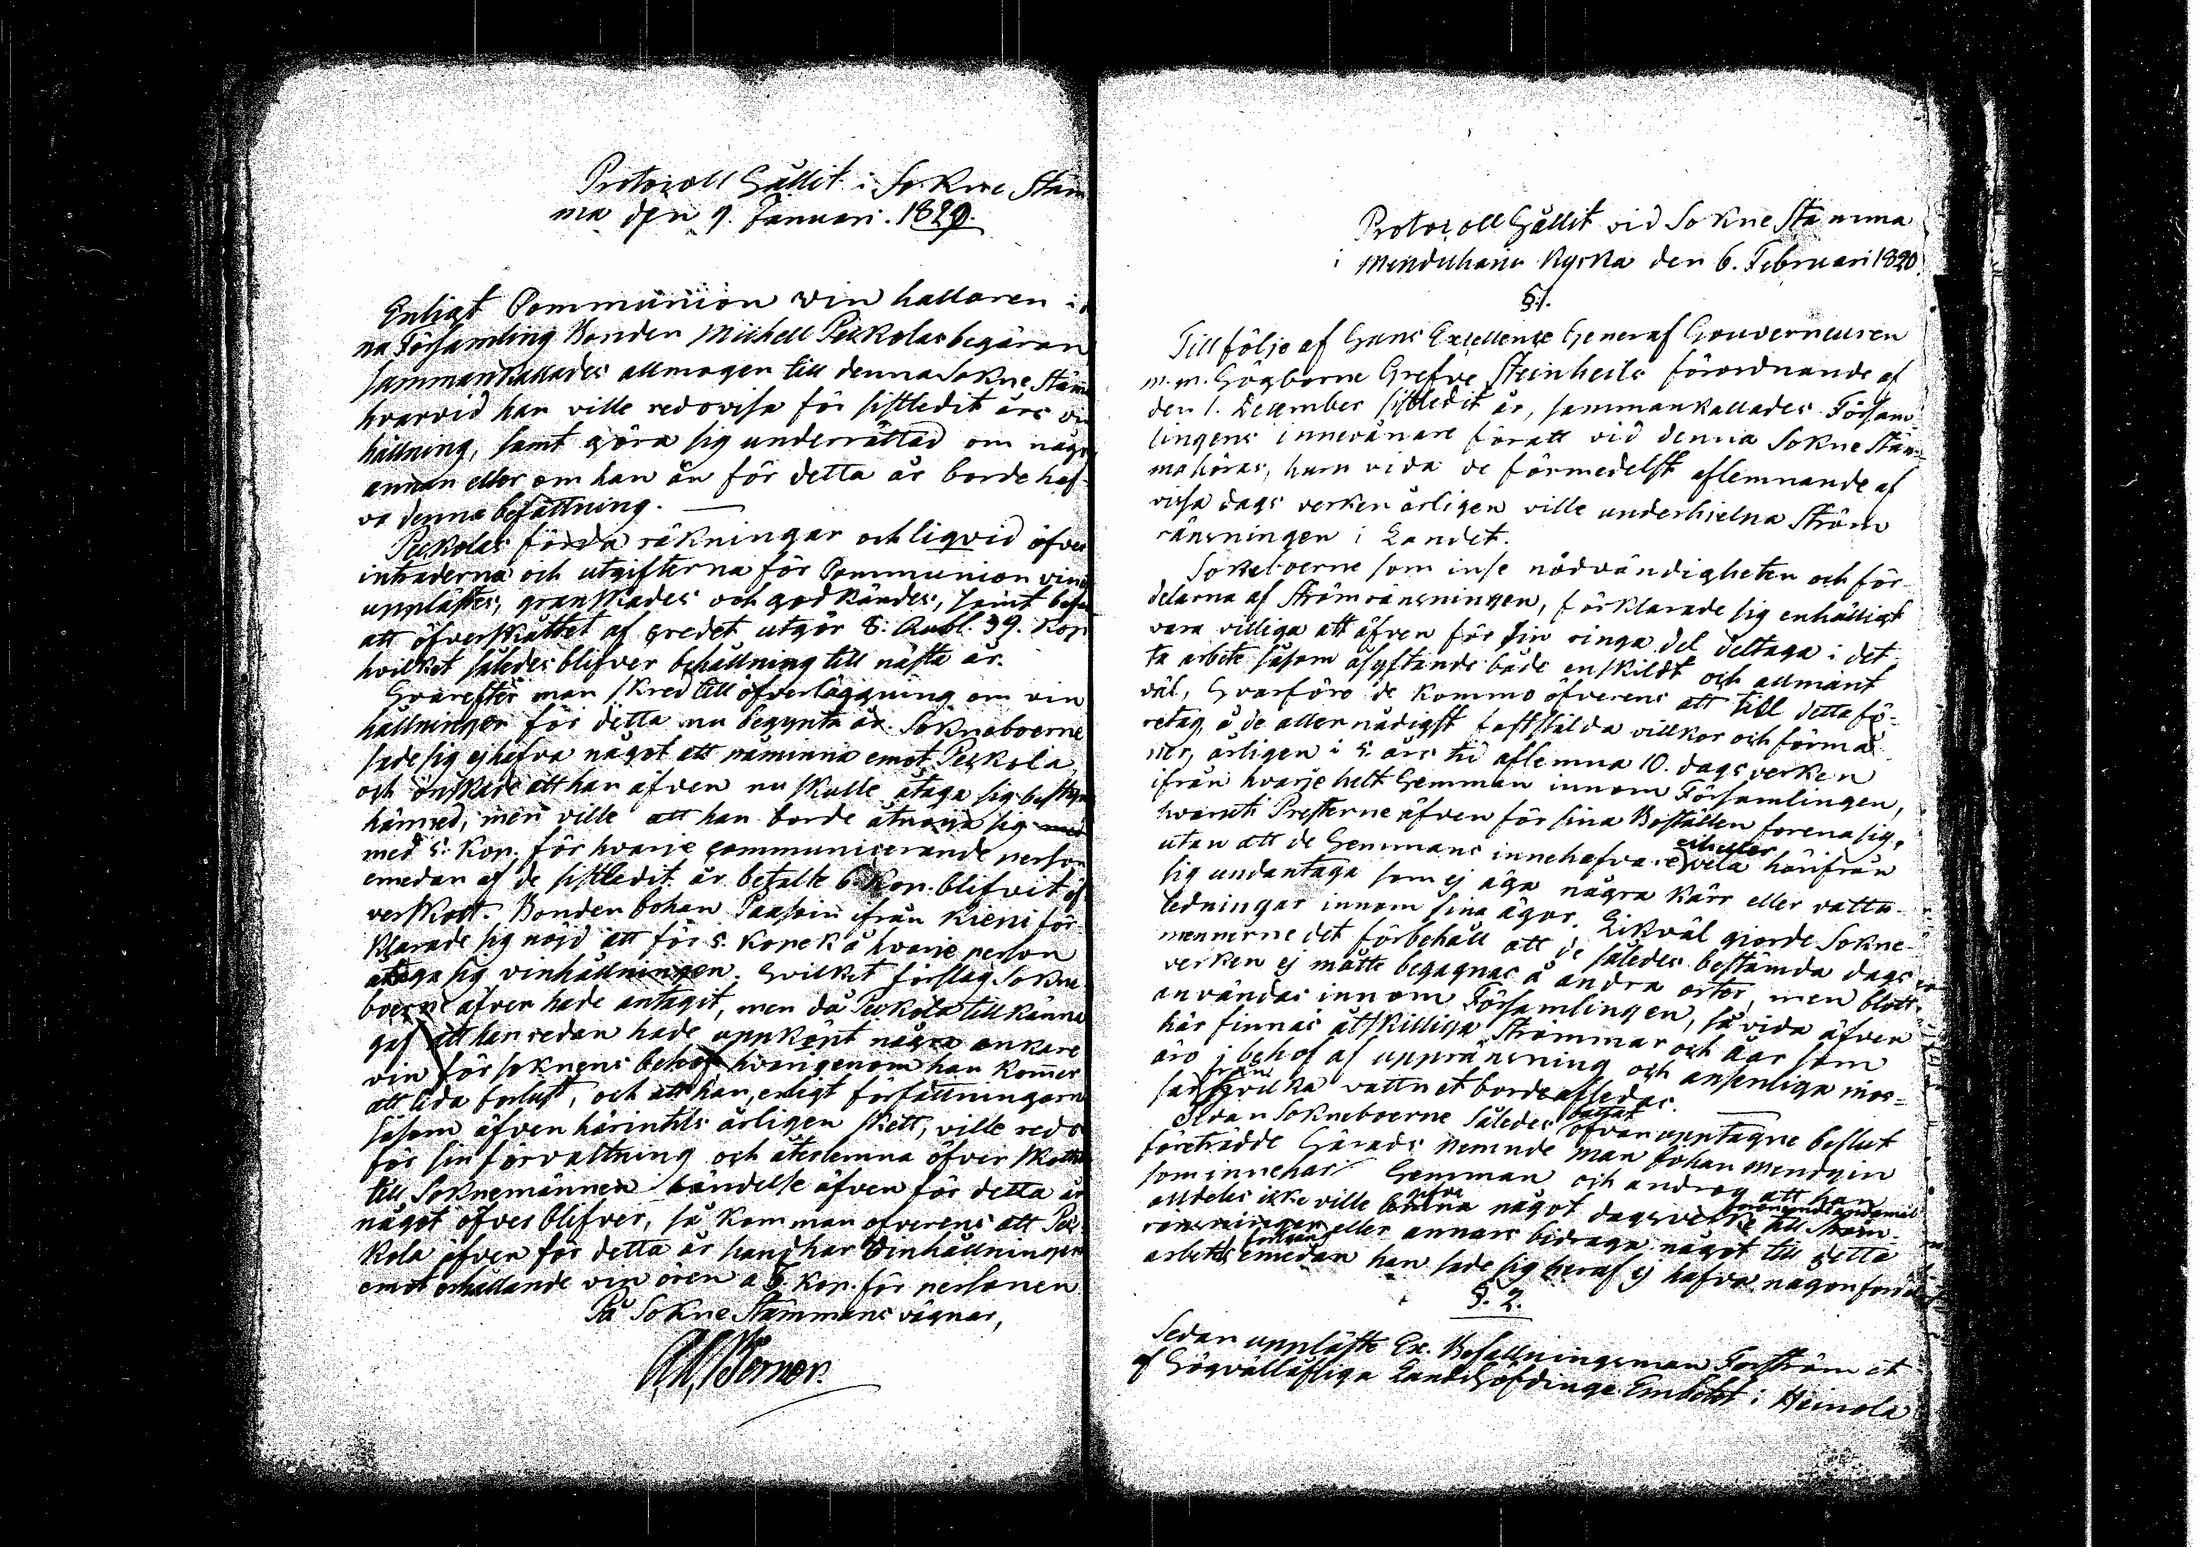 Protocoll Hållit i Sokne Stäm
ma den 9. Januari. 1820.
Enligt Communion vin hallaren i
na Församling Bonden Michell Peckolas begäran
sammankallades allmogen till denna Sokne Stäm
hvarvid han ville redovisa för sistledit års vin
hållning, samt göra sig underrättad om någon
annan eller om han än för detta år borde haf-
va denna befattning.
Peckolas förda räkningar och liqvid öfver
intraderna och utgifterna för Communion vin
upplästes, granskades och godkändes, samt
att öfverskottet af gredet utgör 8. Rubl. 39. Kop
hvilket således blifver behållning till nästa år.
Hvarefter man skred till öfverläggning om vin
hållningen för detta nu begynta år. Sokneboerne
sade sig ej hafva något att påminna emot Peckola
och önskade att han äfven nu skulle åtaga sig bestyr
härmed, men ville att han borde åtnöja sig
med 5. Kop. för hvarje communicerande person
emedan af de sistledit år betalte 6. Kop. blifvit öf
verskott. Bonden Johan Paasoin ifrån Kieni för-
klarade sig nöjd att för 5. Kopek å hvarje person
åtaga sig vinhållningen. Hvilket förslag Sokne
boerne äfven hade antagit, men då Peckola tillkänna
gaf att han redan hade uppköpt några ankare
vin för soknens behof hvarigenom han kommer
att lida förlust, och att han, enligt författningarna
såsom äfven härintils årligen skett, ville redo
för sin förvaltning och återlemna öfverskottet
till Soknemännen händelse äfven för detta år
något öfverblifver, så kom man öfverens att Pec
kola äfven för detta år handhar vinhållningen
emot erhållande vin ören a 6. kop. för personen
På Sokne Stämmans vägnar,
Protocoll Hållit vid Sokne Stämma
i Menduharju Kyrka den 6. Februari 1820.
§. 1.
Till följe af Hans Excellence General Gouverneuren
m. m. Högborne Grefve Steinheils förordnande af
den 1. December sistledit år, sammankallades Försam-
lingens innevånare för att vid denna Sokne Stäm-
ma höras, huru vida de förmedelst aflemnande af
vissa dags verken årligen ville underhielpa Ström
ränsningen i Landet.
Sokneboerne som inse nödvändigheten och för-
delarna af Strömränsningen, förklarade sig enhälligt
vara villiga att äfven för sin ringa del deltaga i det-
ta arbete såsom åsyftande både enskildt och allmänt
väl, Hvarföre de kommo öfverens att till detta fö-
retag, å de allernådigst faststälda villkor och förmå-
ner, årligen i 5. års tid aflemna 10. dagsverken
ifrån hvarje helt Hemman innom Församlingen,
hvaruti Presterne äfven för sina Boställen forena sig,
utan att de Hemmans innehafvare eiheller vela härifrån
sig undantaga som ej äga några kärr eller vatten-
ledningar innom sina ägor. Likväl giorde Sokne-
mennerne det förbehåll att de således bestämda dags
verken ej måtte begagnas å andra orter, men blott
användas innom Församlingen, så vida äfven
här finnas åtskilliga Strömmar och åar som
äro i behof af uppränsning och ansenliga mos-
sar från hvilka vattnet borde afledas.
Sedan Sokneboerne således fattat ofvanupptagne beslut
företrädde Härads Nemnde man Johan Mendoin
som innehar Hemman och androg att han
alldeles ikke ville lemna något dagsverke till Ström-
ränsningen eller annars bidraga något till detta
arbete emedan han sade sig heraf ej hafva någon fördel
§. 2.
Sedan uppläste Ex. Befallningsman Forsström et
af Högvällofliga Landshöfdinge Embetet i Heinola